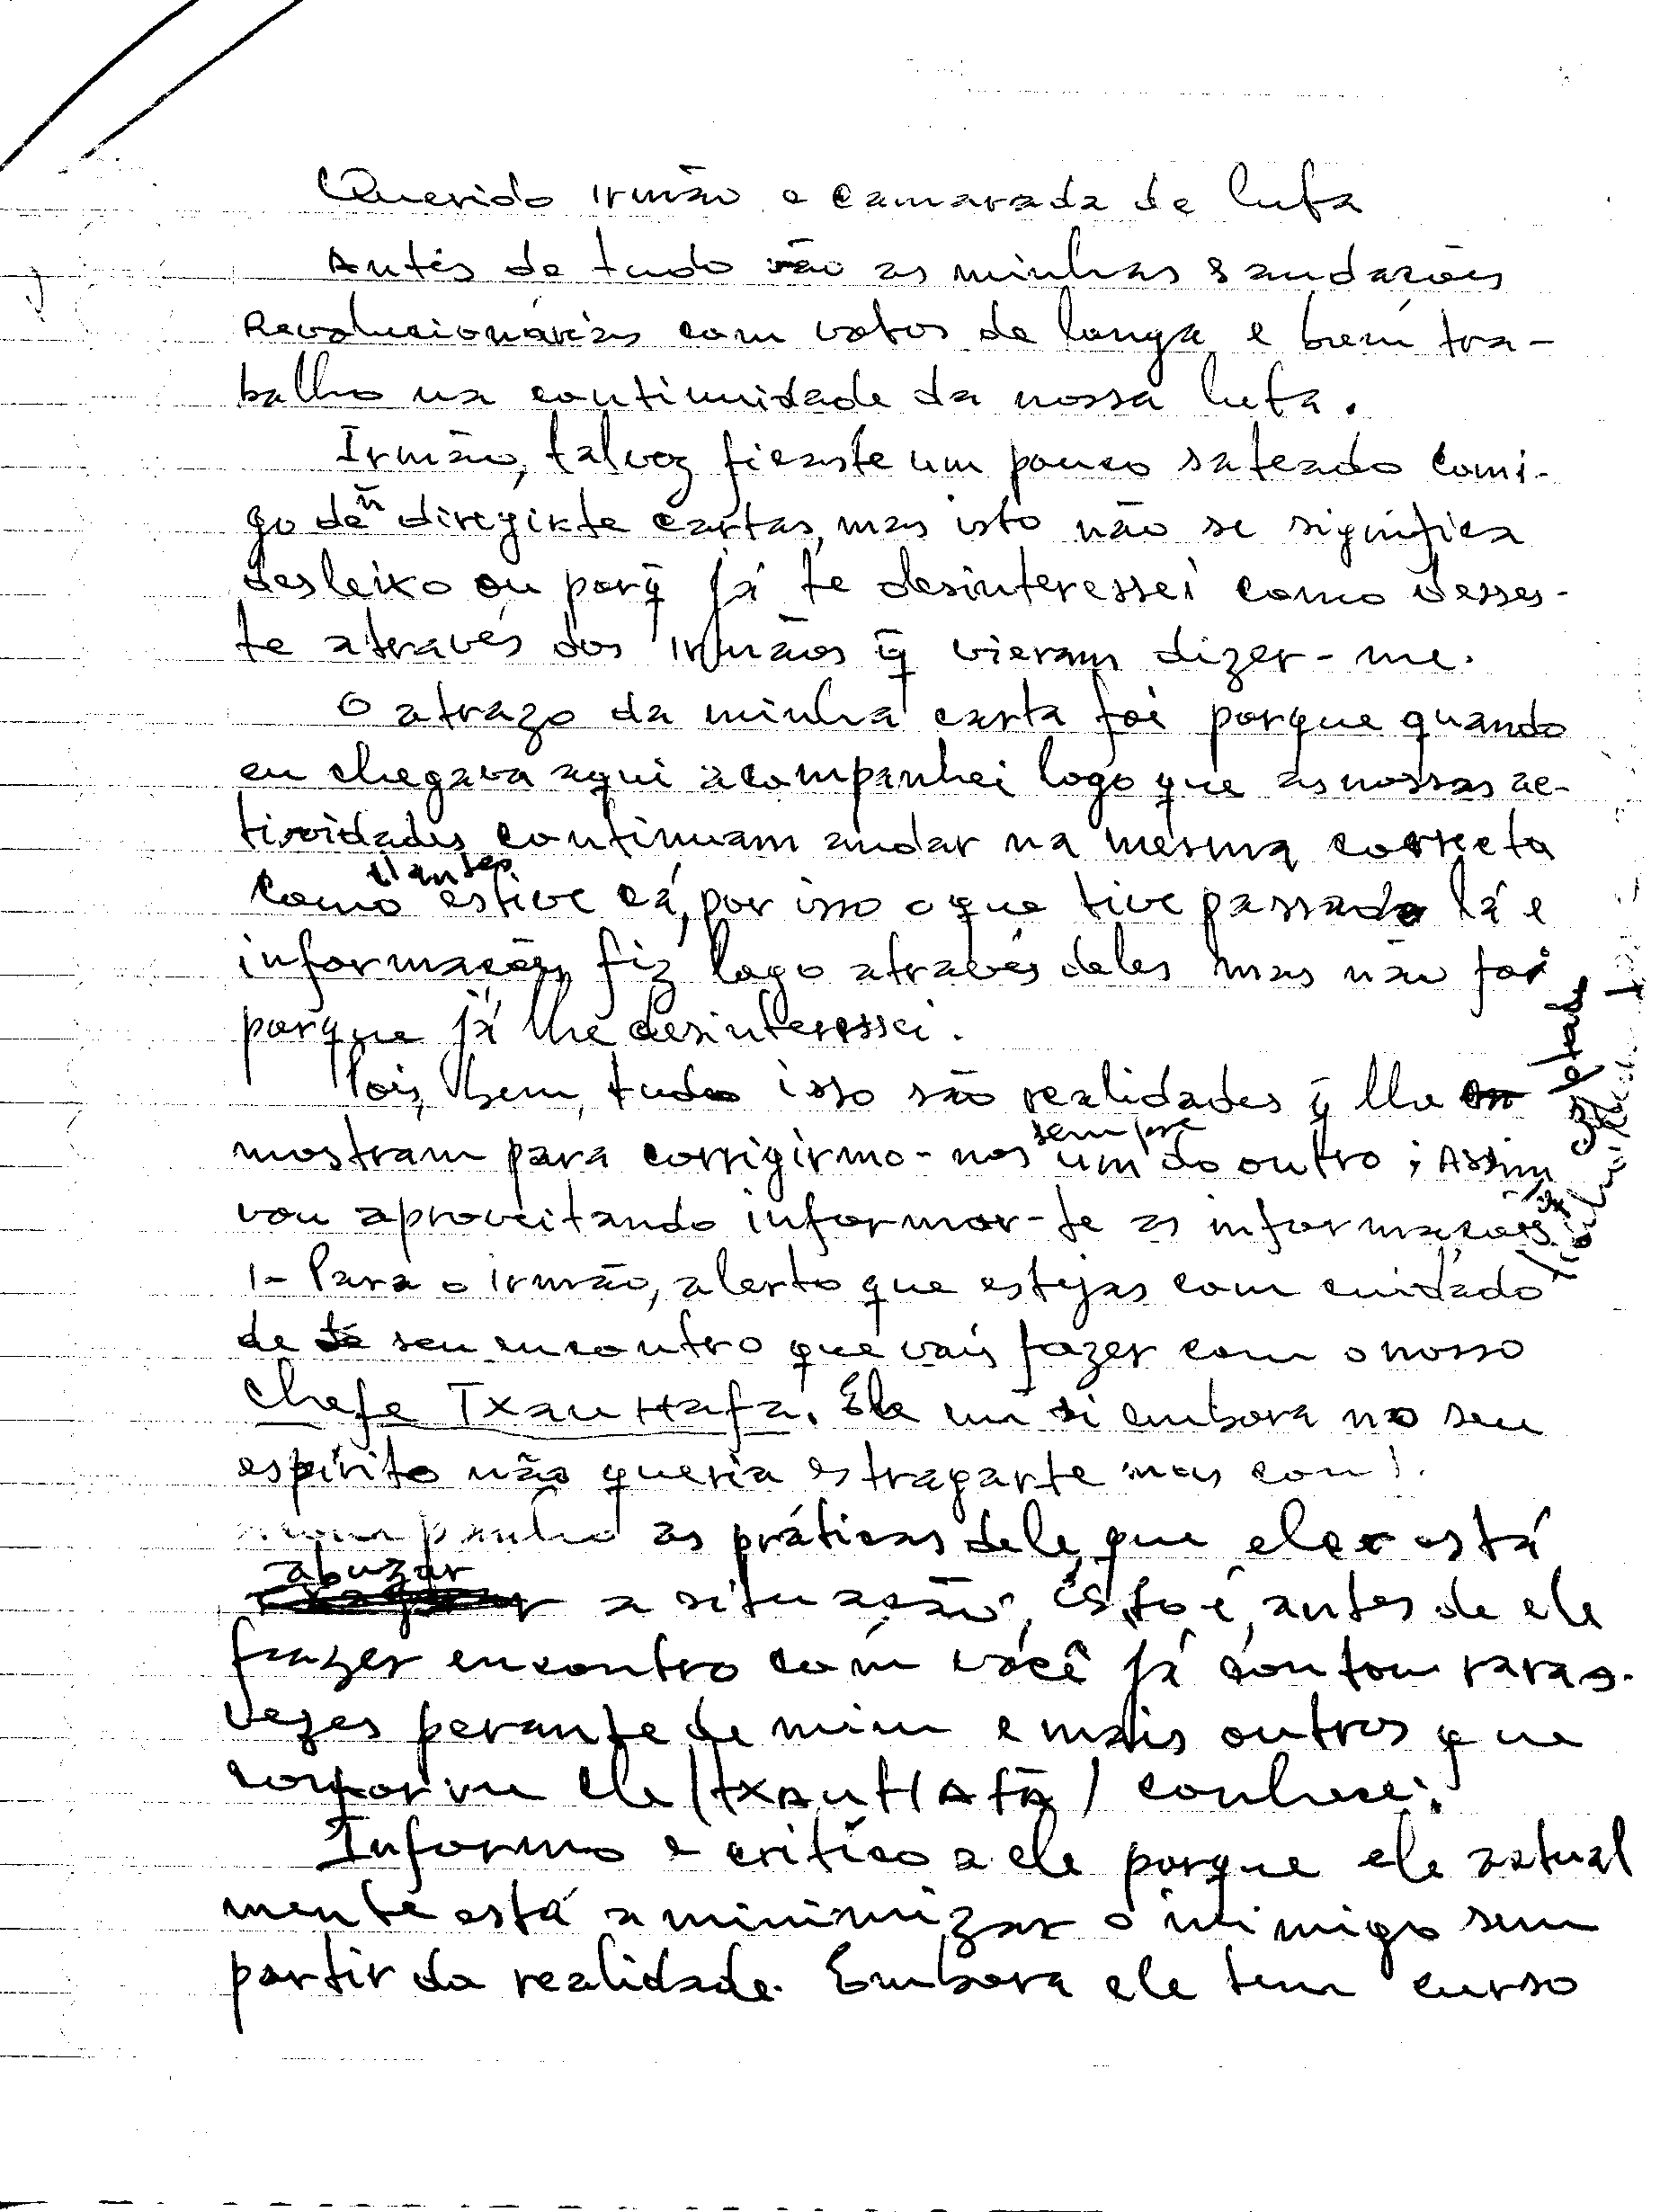 Querido irmão e camarada de luta
Antes de tudo vão as minhas saudações
Revolucionárias com votos de longa e bem tra-
balho na continuidade da nossa luta.
Irmão, talvez ficaste um pouco sateado comi-
go de ñ diregirte cartas, mas isto não se significa
desleixo ou porq̃ já te desinteressei como desses-
te através dos irmãos q̃ vieram dizer-me.
O atrazo da minha carta foi porque quando
eu chegava aqui acompanhei logo que as nossas ac-
tividades continuam andar na mesma correcta
como d'antes estive cá, por isso o que tive passado lá e
informações fiz logo através deles mas não foi
porque já lhe desinteressei.
Pois, bem, tudo isso são realidades q̃ lhe
mostram para corrigirmo-nos sempre um do outro; Assim
vou aproveitando informar-te as informações
1- Para o irmão, alerto que estejas com cuidado
de seu encontro que vais fazer com o nosso
Chefe Txautiafa. Ele em si embora no seu
espírito não queria estragarte mas
as práticas dele, que ele está
abuzar a situação, isto é, antes de ele
fazer encontro com você já contou raras
vezes perante de mim e mais outros que
conforme ele /TXAUTIAFA/ conhece.
Informo e critico a ele porque ele actual
mente está a minimizar o inimigo sem
partir da realidade. Embora ele tem curso